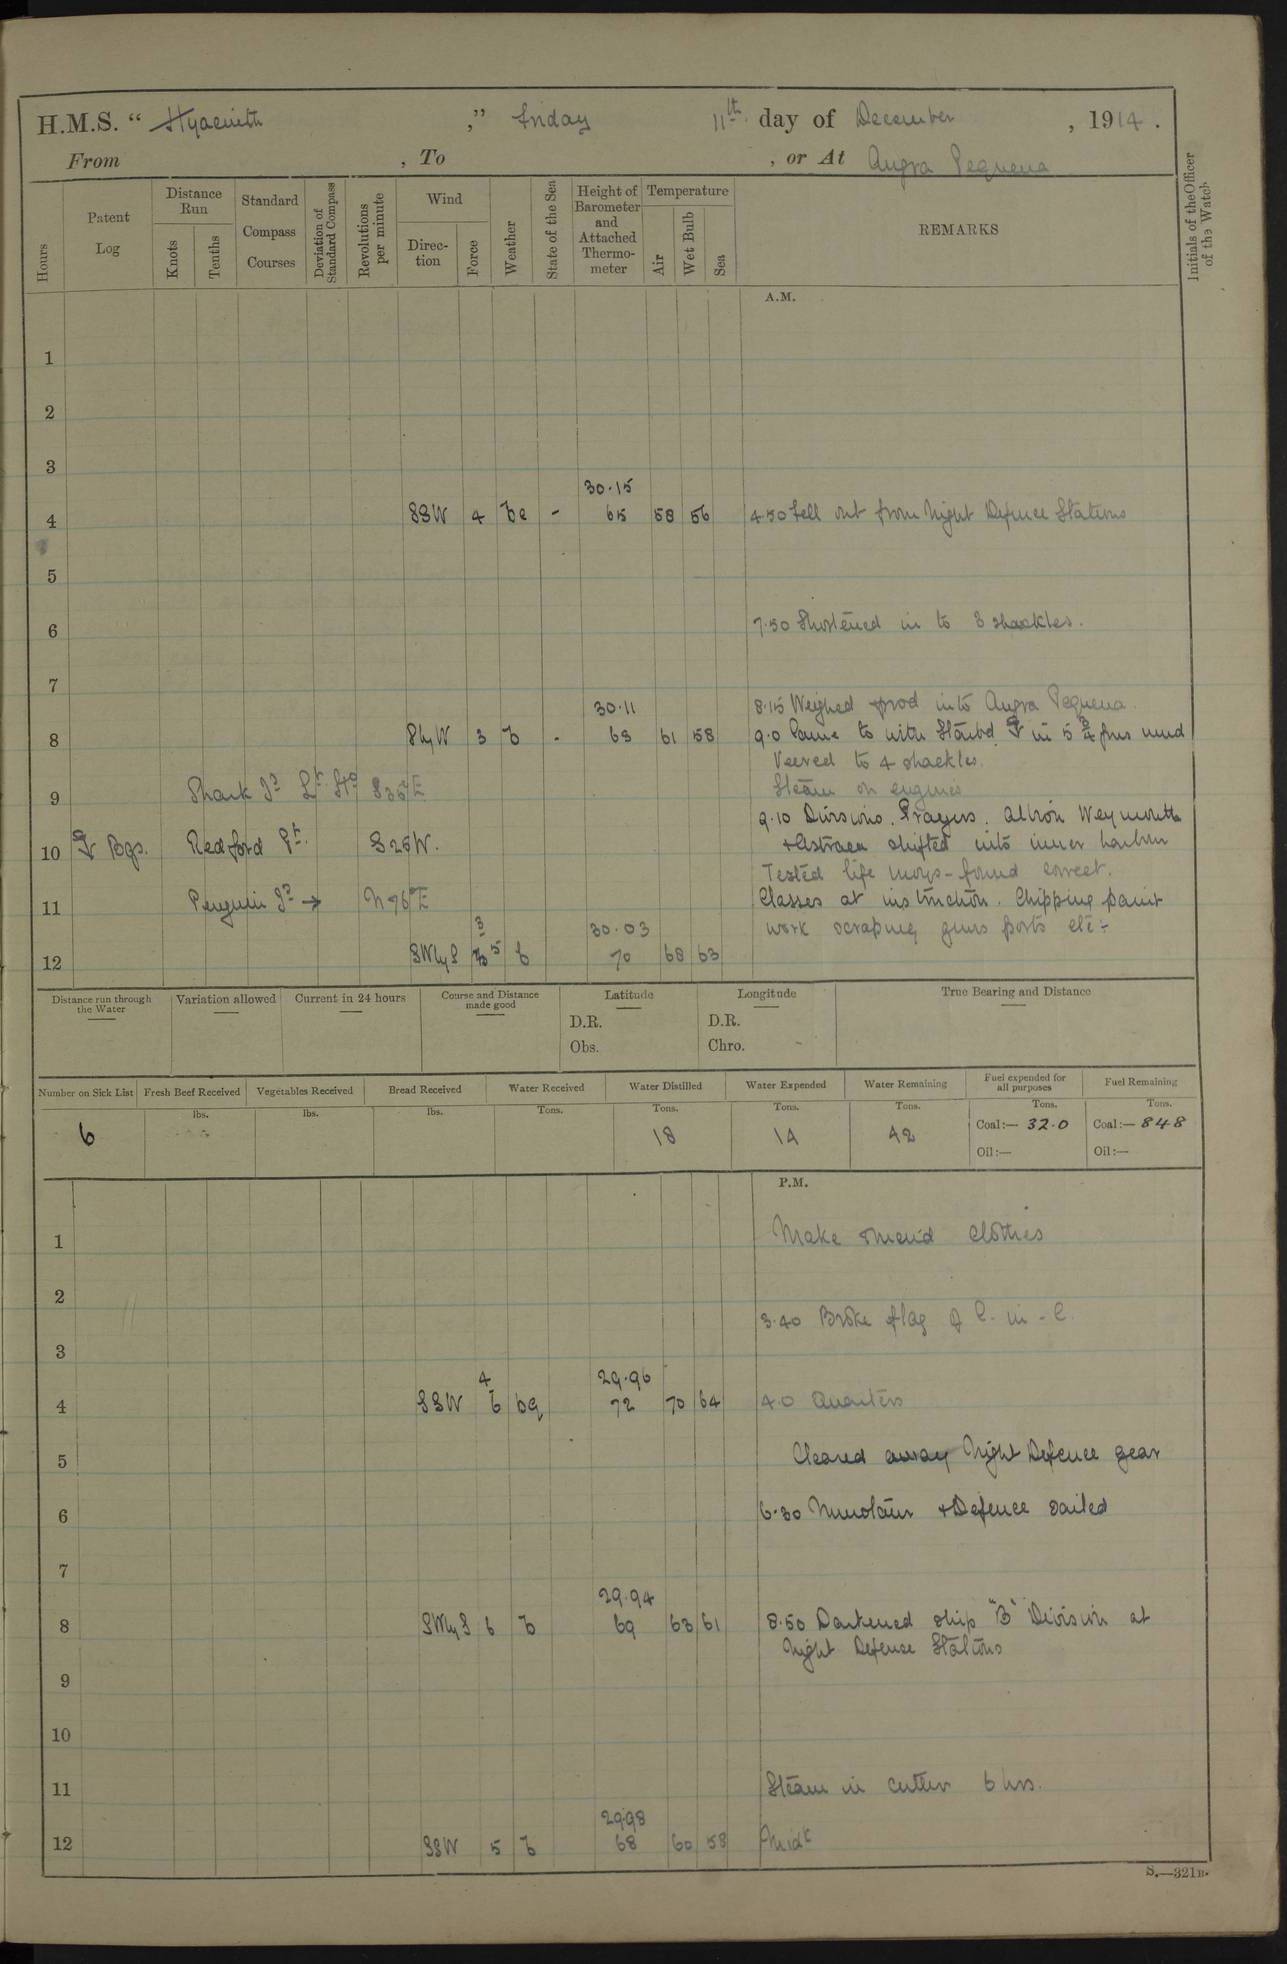 H.M.S. “ Hyacinth ,” Friday 11th day of December , 1914 .
From , To , or At Angra Pequena
Hours
Patent Log
Distance Run
Knots
Tenths
Standard Compass Courses
Deviation of Standard Compass
Revolutions per minute
Wind
Direc-tion
Force
Weather
State of the Sea
Height of Barometer and Attached Thermo-meter
Temperature
Air
Wet Bulb
Sea
REMARKS
Initials of the Officer of the Watch
A.M.
1
2
3
30.15
4 SSW 4 bc - 65 58 56 4.50 Fell out from Night Defence Stations
5
6 7.50 Shortened in to 3 shackles.
7
30.11 8.15 Weighed & prod into Angra Pequena.
8 SbyW 3 b - 63 61 58 9.0 Came to with Starbd in 5 3/4 fms mud
Veered to 4 shackles.
9 Shark Id Lt Ho S35°E Steam on engines
9.10 Divisions. Prayers. Albion Weymouth
10 Bgs. Redford Pt. S25W. + Astraea shifted into inner harbour
Tested life buoys - found correct.
11 Penguin Id → N76°E Classes at instruction. Chipping paint
3 30.03 work scraping guns ports etc:-
12 SWbyS 5 b 70 68 63
Distance run through the Water
Variation allowed
Current in 24 hours
Course and Distance made good
Latitude
D.R.
Obs.
Longitude
D.R.
Chro.
True Bearing and Distance
Number on Sick List
Fresh Beef Received
Vegetables Received
Bread Received
Water Received
Water Distilled
Water Expended
Water Remaining
Fuel expended for all purposes
Fuel Remaining
lbs. lbs. lbs. Tons. Tons. Tons. Tons. Tons. Tons.
6 18 14 42 Coal:— 32.0 Coal:— 848
Oil:— Oil:—
P.M.
1 Make & mend clothes
2
3.40 Broke flag of C.-in-C.
3
4 29.96
4 SSW 6 bq 72 70 64 4.0 Quarters
5 Cleared away Night Defence gear
6 6.30 Minotaur + Defence sailed
7
29.94
8 SWbyS 6 b 69 63 61 8.50 Darkened ship "B" Division at
Night Defence Stations
9
10
11 Steam in cutter 6 hrs.
29.98
12 SSW 5 b 68 60 58 Midt
S.—321B.